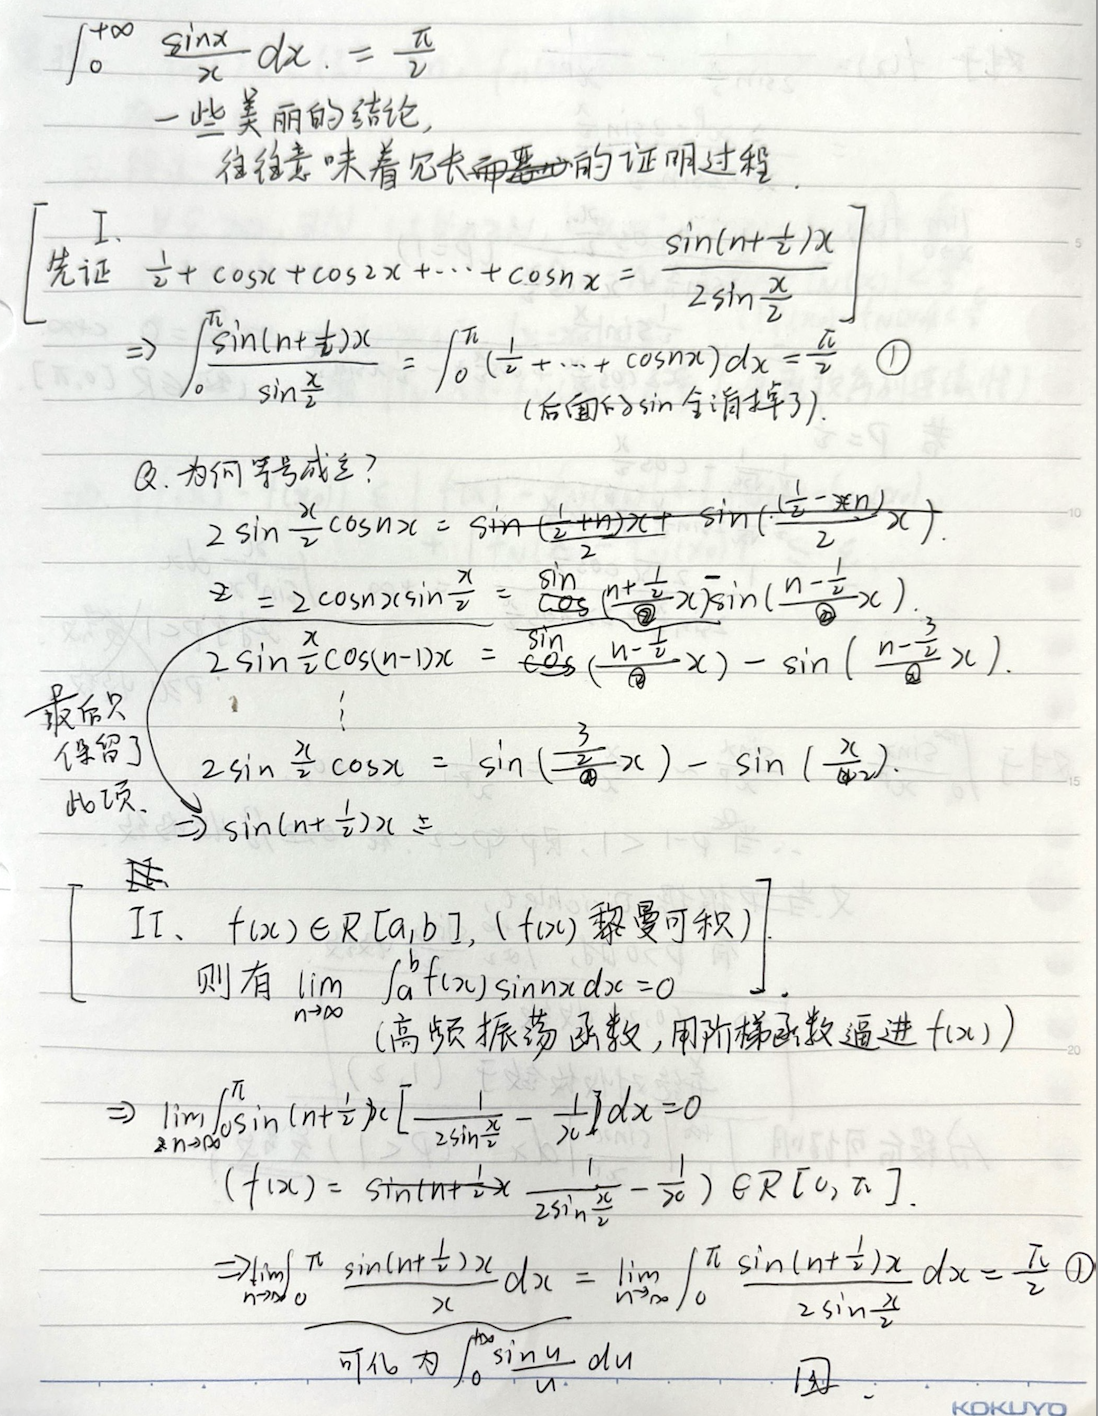 ∫₀^{+∞} sinx/x dx. = π/2
一些美丽的结论,
往往意味着冗长而恶心的证明过程.
I.
先证 1/2 + cosx + cos2x + ⋯ + cosnx = sin(n+1/2)x / 2sin x/2
⇒ ∫₀^π sin(n+1/2)x / sin x/2 = ∫₀^π (1/2 + ⋯ + cosnx) dx = π/2 ①
(后面的sin全消掉了).
Q. 为何等号成立?
2 sin x/2 cosnx = sin (1/2+n)x/2 + sin((1/2-xn)/2 x).
= 2cosnx sin x/2 = sin (n+1/2 x) - sin(n-1/2 x).
2 sin x/2 cos(n-1)x = sin (n-1/2 x) - sin (n-3/2 x).
⋮
最后只
保留了
此项.
2 sin x/2 cosx = sin (3/2 x) - sin (x/2).
⇒ sin(n+1/2)x =
II、 f(x) ∈ R [a,b], (f(x) 黎曼可积).
则有 lim n→∞ ∫ₐᵇ f(x) sinnx dx = 0
(高频振荡函数,用阶梯函数逼进 f(x))
⇒ lim n→∞ ∫₀^π sin (n+1/2)x [1/2sin x/2 - 1/x] dx = 0
(f(x) = sin(n+1/2)x 1/2sin x/2 - 1/x) ∈ R [0, π].
⇒ lim n→∞ ∫₀^π sin(n+1/2)x / x dx = lim n→∞ ∫₀^π sin(n+1/2)x / 2 sin x/2 dx = π/2 ①
可化为 ∫₀^{+∞} sinu/u du
KOKUYO